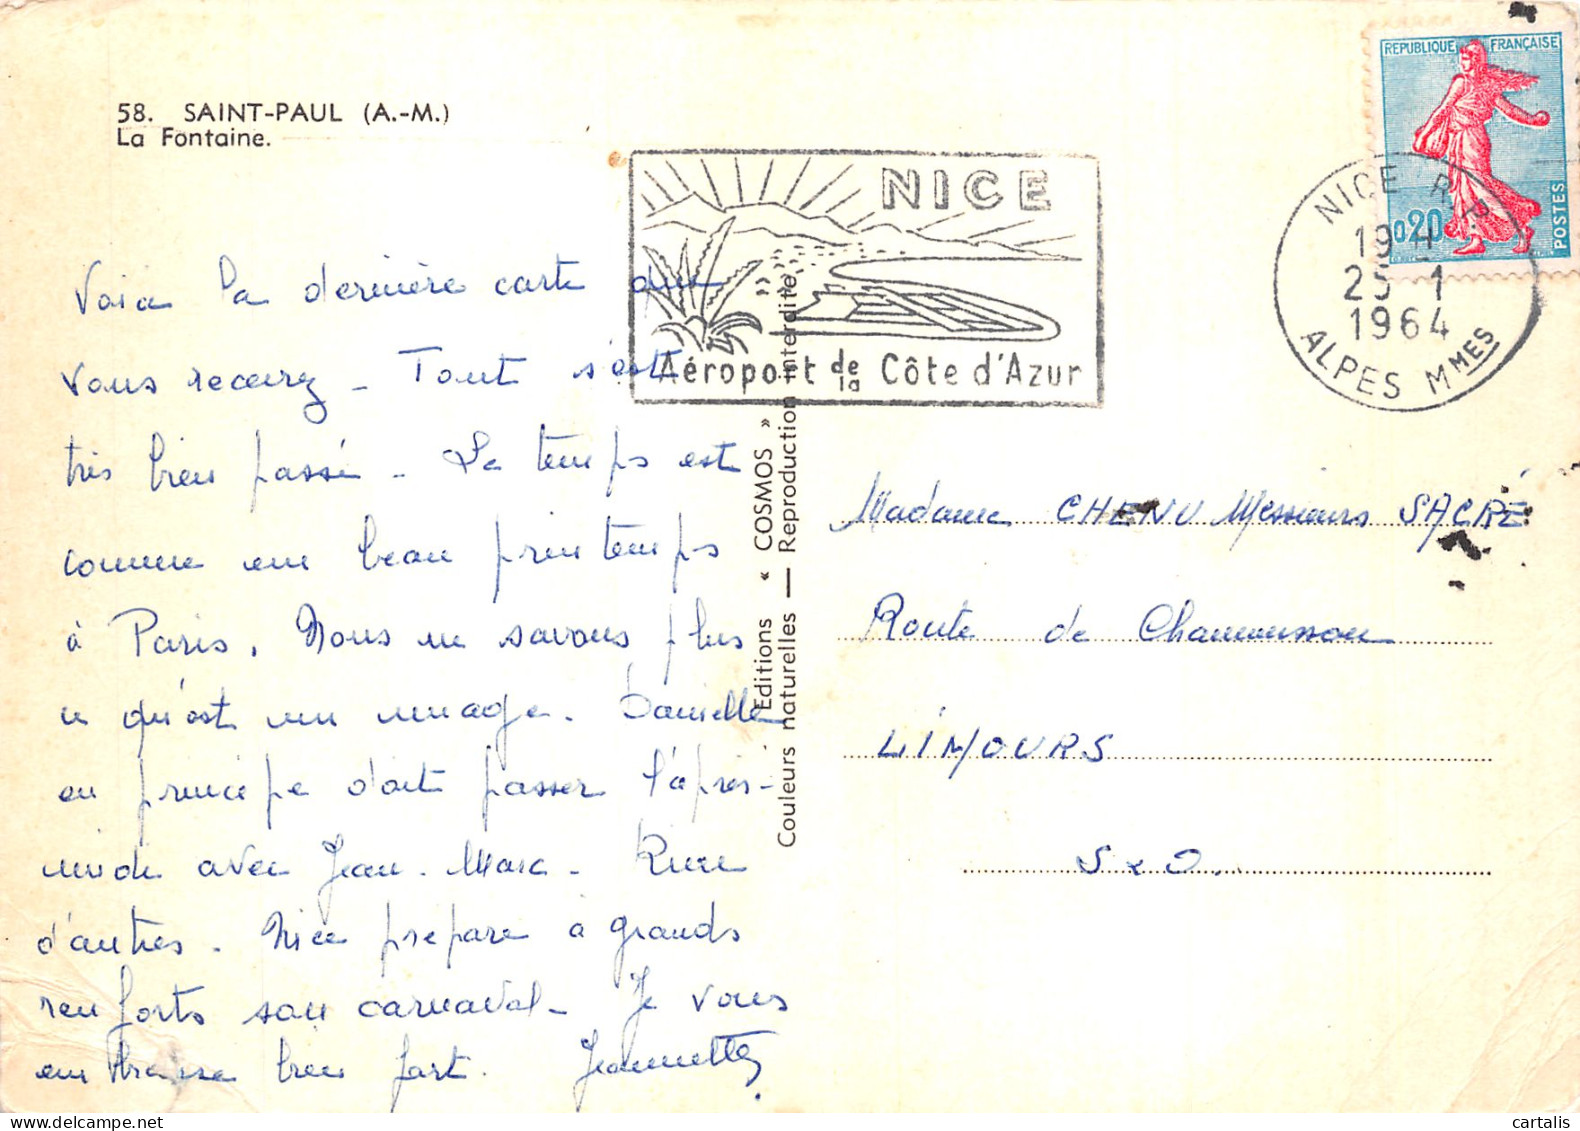 58. SAINT-PAUL (A.-M.)
La Fontaine.
Voici la dernière carte que
vous recevrez - Tout s'est
très bien passé - Le temps est
comme un beau printemps
à Paris. Nous ne savons plus
ce qu'est un nuage. Danielle
en principe doit passer l'après-
midi avec Jean-Marc - Rien
d'autres. Nice prépare à grands
renforts son carnaval - Je vous
embrasse bien fort. Jeannette.
NICE
Aéroport de la Côte d'Azur
Editions « COSMOS »
Couleurs naturelles — Reproduction interdite
REPUBLIQUE FRANÇAISE
0,20
POSTES
NICE R.P.
19 H
25 - 1
1964
ALPES MMES
Madame CHENU Messieurs SACRÉ
Route de Chaumusson
LIMOURS
S & O.
cartalis